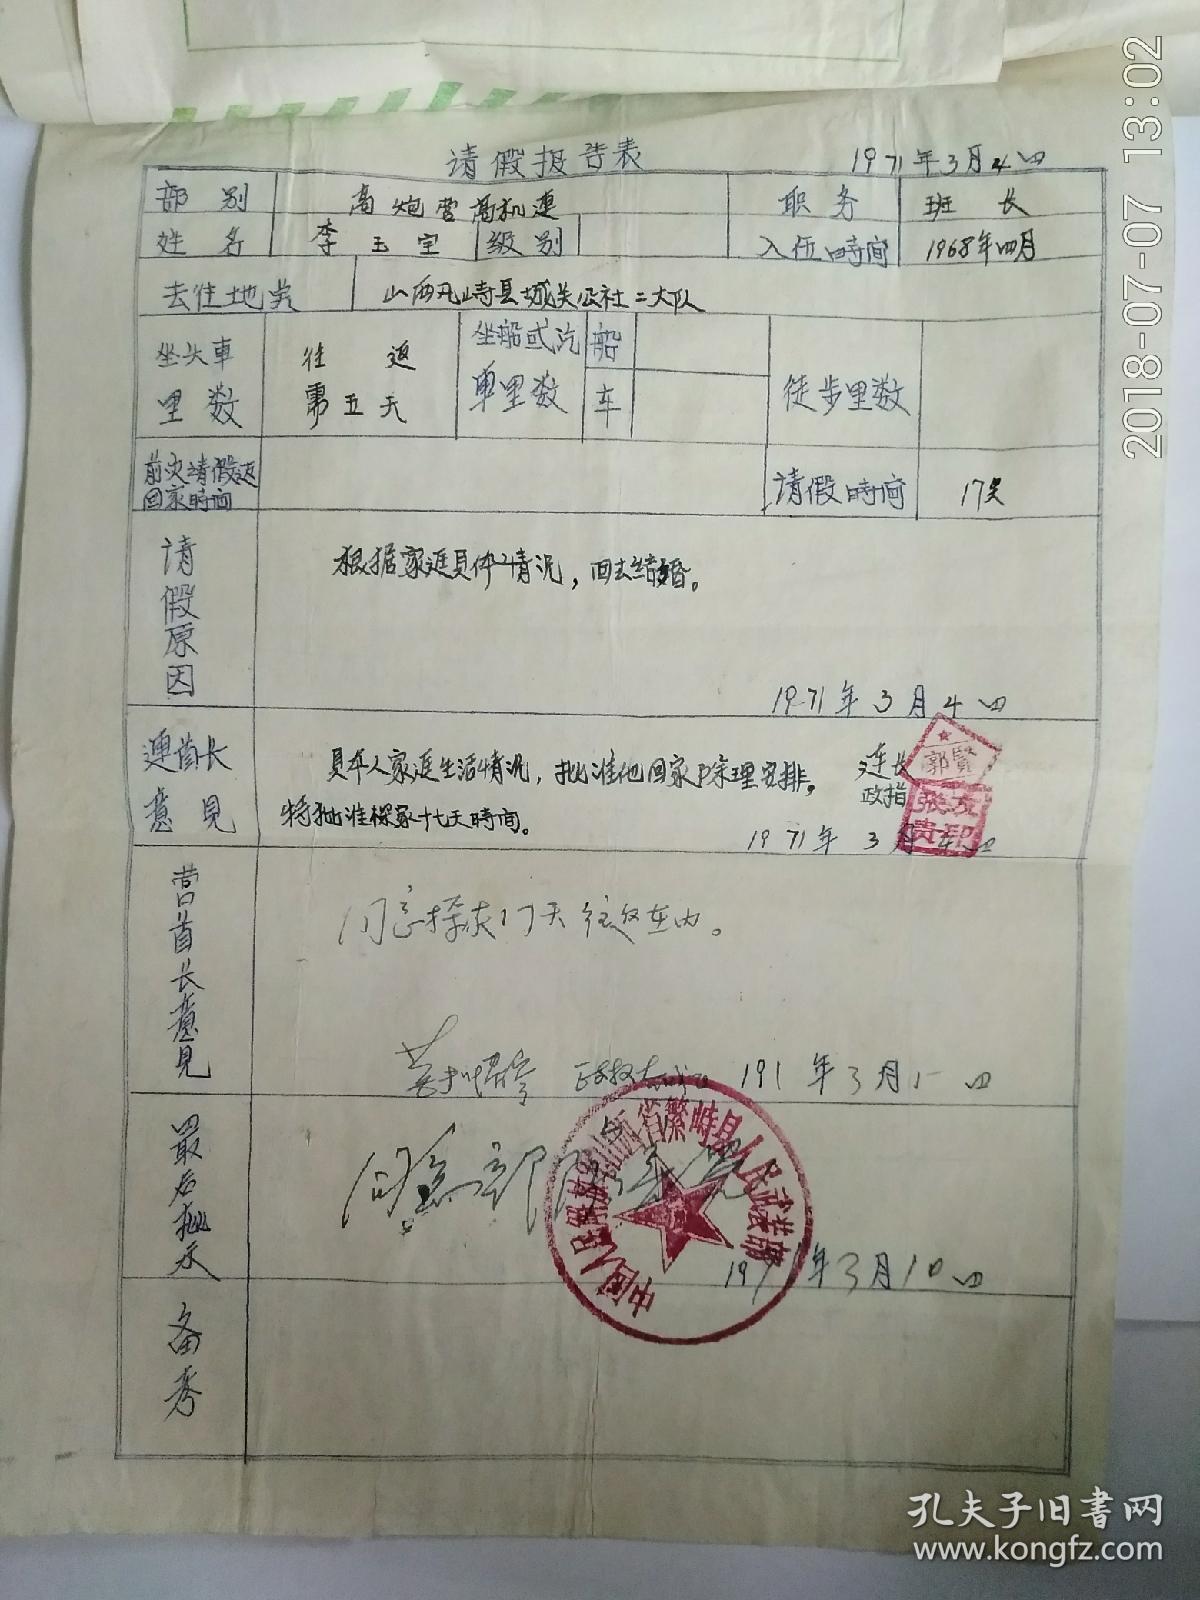 请假报告表
1971年3月4日
部别 高炮营高机连 职务 班长
姓名 李玉宝 级别 入伍時间 1968年四月
去往地点 山西凡峙县城关公社二大队
坐火車里数 往返需五天
坐船或汽車里数 船 车
徒步里数
前次请假返回家時间
请假時间 17天
请假原因
根据家庭具体情况，回去结婚。
1971年3月4日
連首长意見
具本人家庭生活情况，批准他回家户宗理安排。
特批准探家十七天時间。
连长 郭賢
政指 张友贵印
1971年3月4日
营首长意見
同意探家17天往返在内。
191年3月5日
最后批示
同意
中国人民解放军山西省繁峙县人民武装部
1971年3月10日
备考
2018-07-07 13:02
孔夫子旧书网
www.kongfz.com